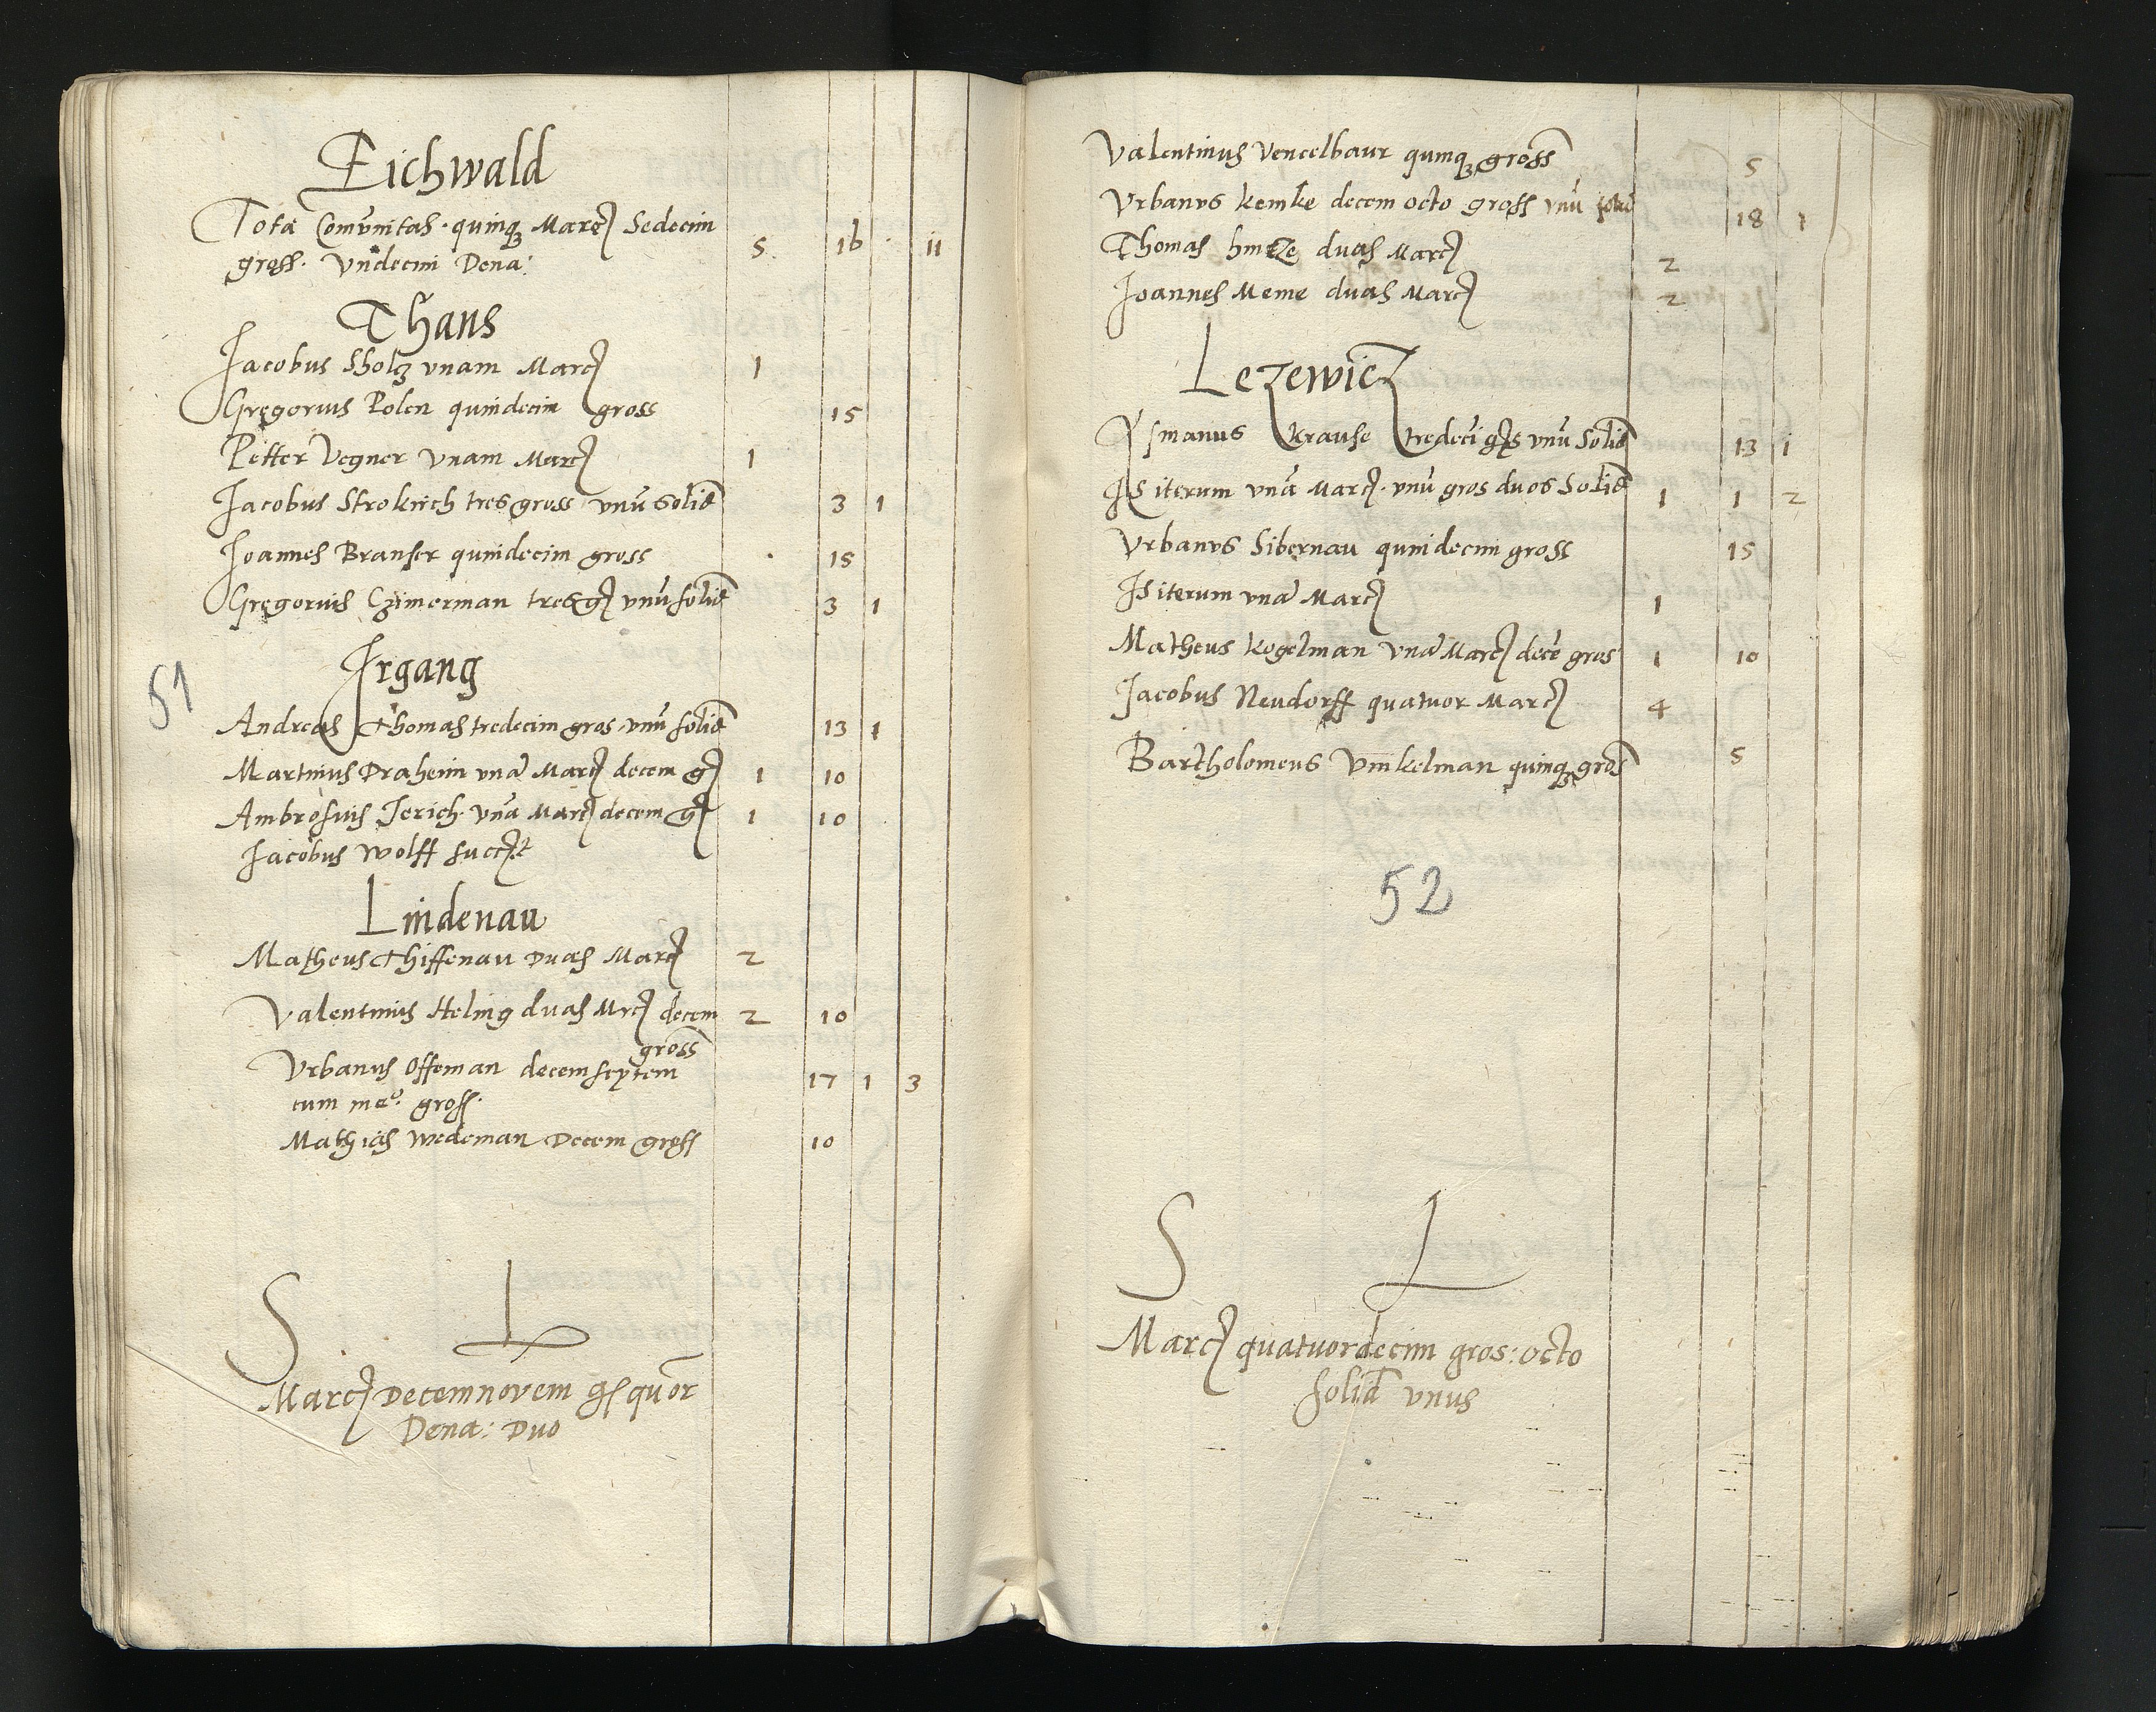 Eichwald
Tota Comūnitas · quinqȝ Marcȝ Sedecim 5 · 16 · 11
gross. Vndecim Dena:
Thans
Jacobus Sholtz vnam Marcȝ 1
Gregorius Polen quindecim gross 15
Petter Vegner Vnam Marcȝ 1
Jacobus Strokirch tres gross vnū Solid 3 1
Joannes Branser quindecim gross · 15
Gregorius Czimerman tres gȝ vnū solid 3 1
Irgang
51
Andreas Thomas tredecim gros. vnū solid 13 1
Martinus Draheim vnā Marcȝ decem gȝ 1 10
Ambrosius Jerich. vnā Marcȝ decem gȝ 1 10
Jacobus Wolff
Lindenau
Matheus Thiffenau Duas Marcȝ 2
Valentinus Heling duas Mrcȝ decem 2 10
gross
Vrbanus Offeman decem septem 17 1 3
cum meo. gross.
Mathias Wedeman Decem gross 10
S L
Marcȝ Decemnovem gs quor
Dena: Duo
Valentinus Vencelbaur quinqȝ gross 5
Vrbanus Kemke decem octo gross vnū solid 18 1
Thomas hincze duas Marcȝ 2
Joannes Meme duas Marcȝ 2
Lezewicz
Krause tredeci gs vnū Solid 13 1
Is iterum vnā Marcȝ. vnū gros duos Solid 1 1 2
Vrbanus Sibernau quindecim gross 15
Is iterum vnā Marcȝ 1
Matheus Kogelman vnā Marcȝ decē gros 1 10
Jacobus Neudorff quatuor Marcȝ 4
Bartholomeus Vinkelman quinqȝ gros 5
52
S L
Marcȝ quatuordecim gros: octo
solid vnus